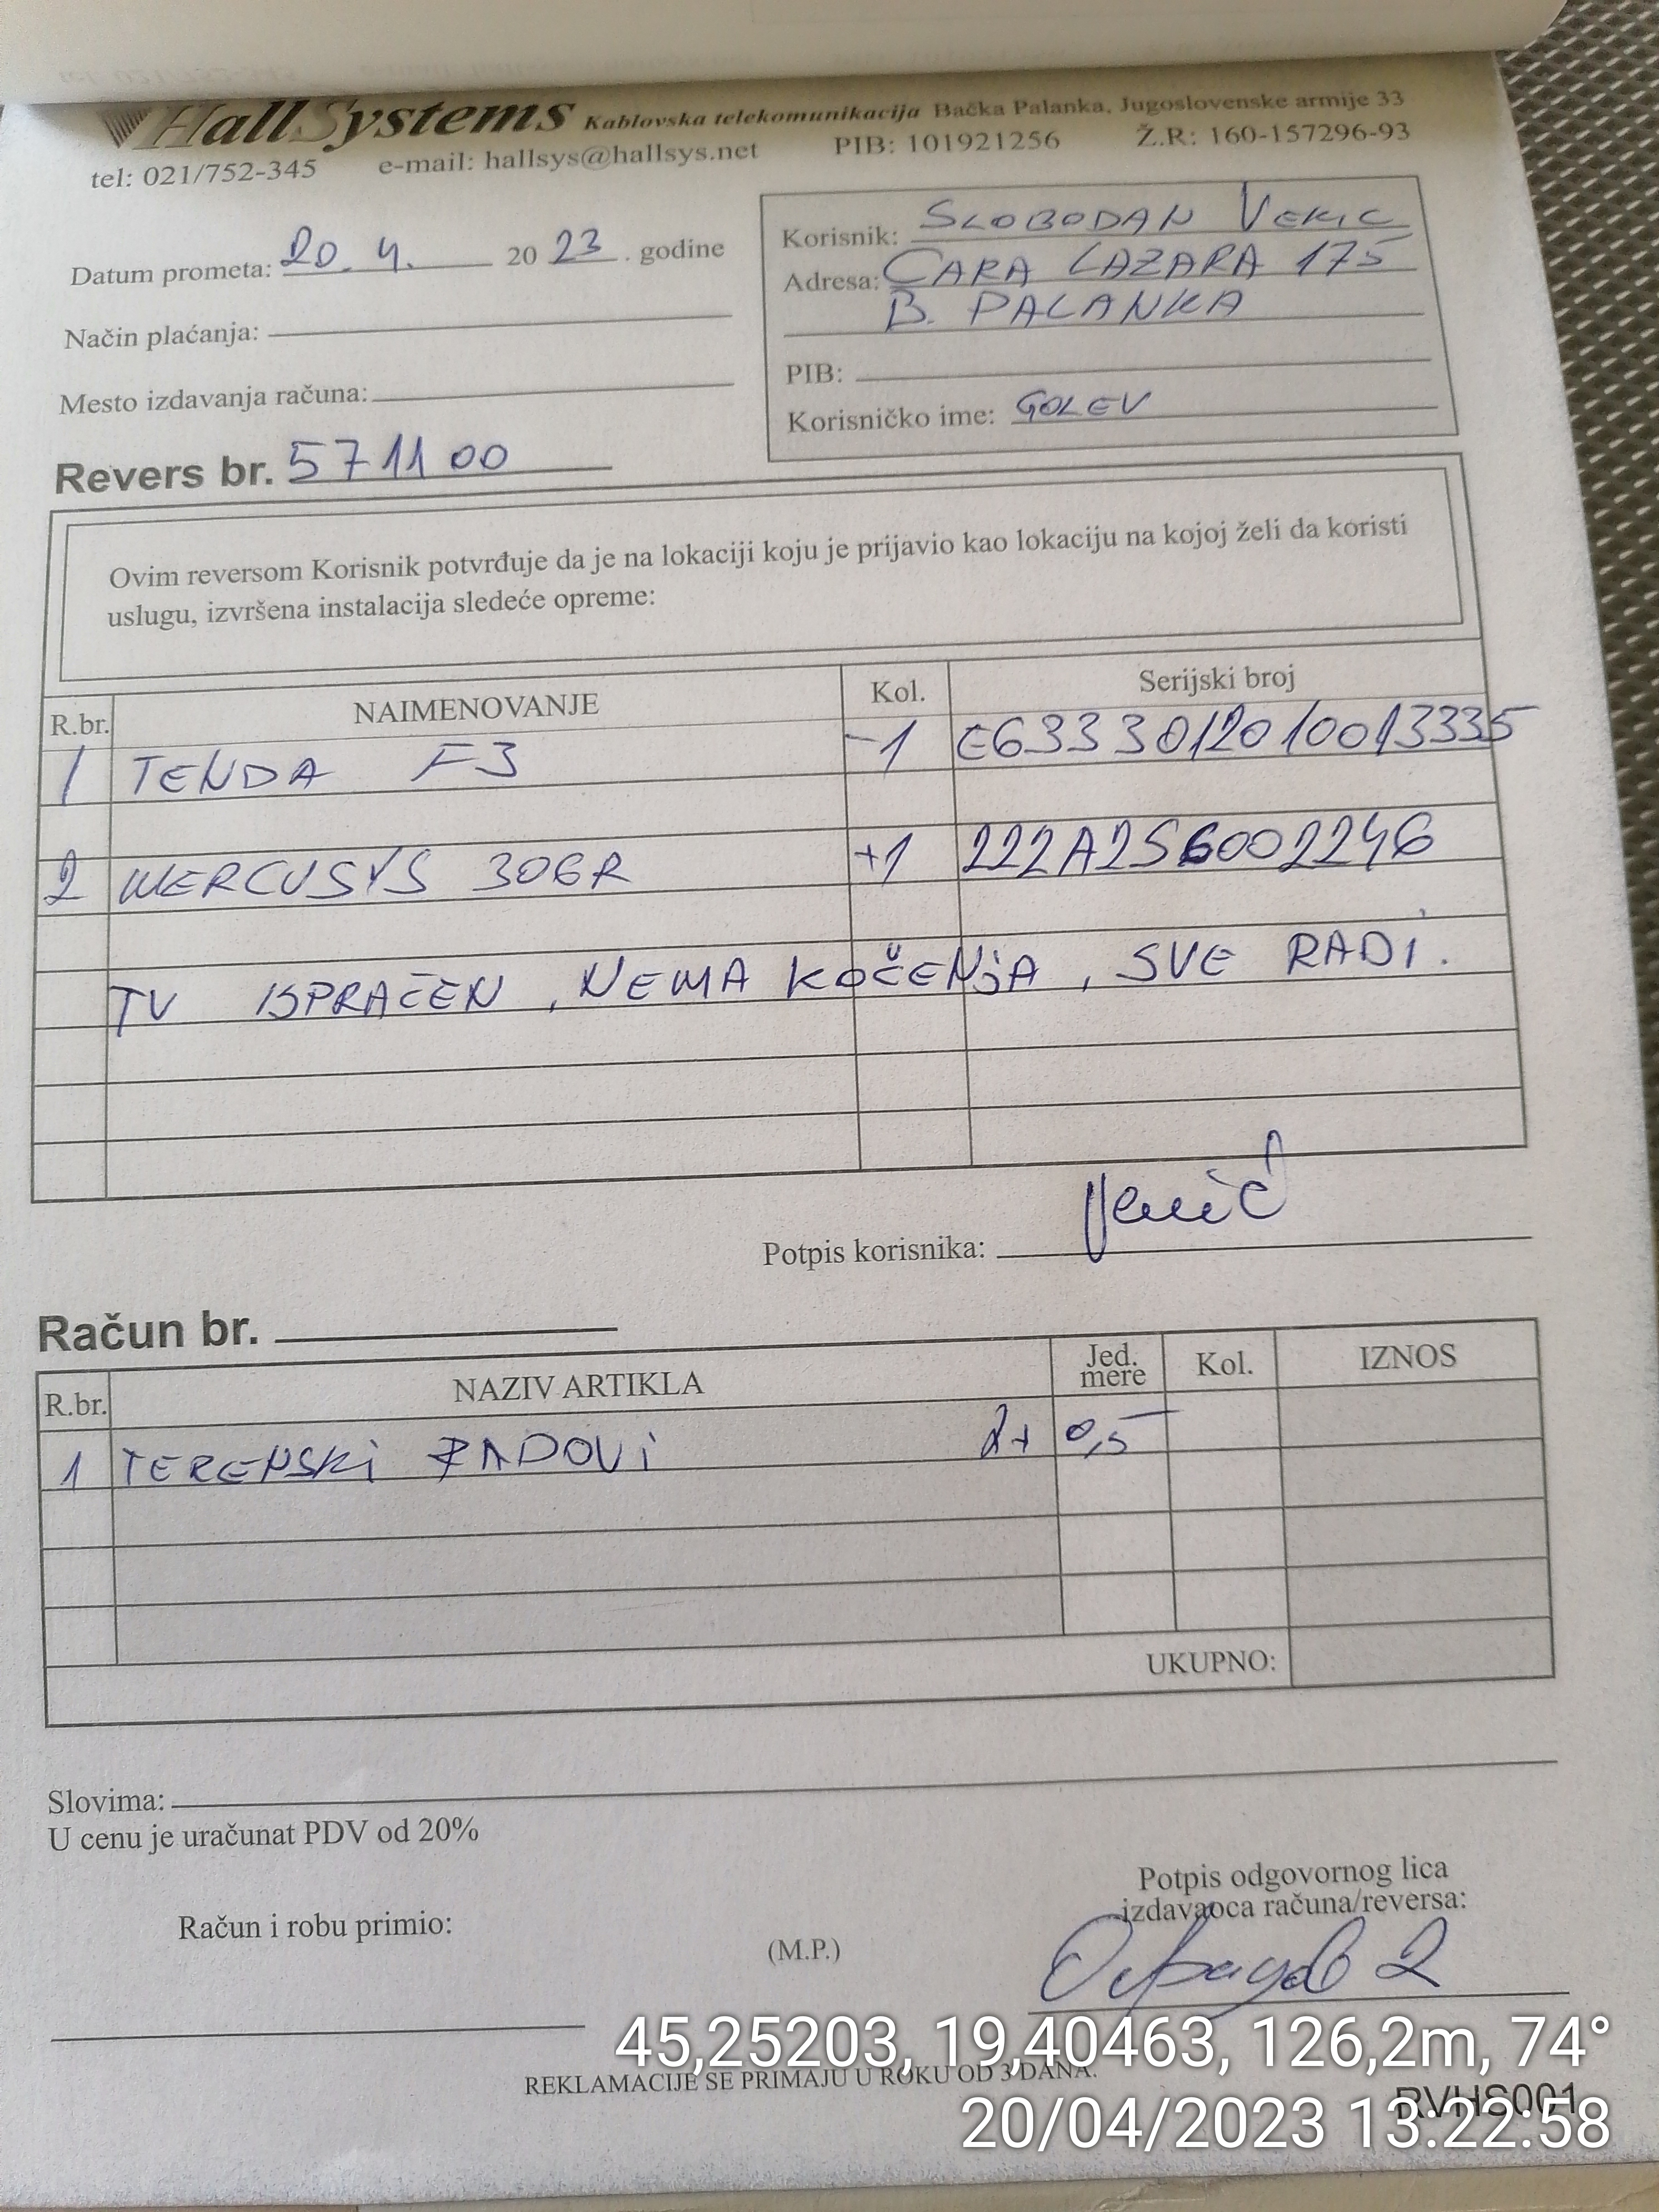 HallSystems Kablovska telekomunikacija Bačka Palanka, Jugoslovenske armije 33
tel: 021/752-345 e-mail: hallsys@hallsys.net PIB: 101921256 Ž.R: 160-157296-93
Datum prometa: 20. 4. 2023. godine
Način plaćanja:
Mesto izdavanja računa:
Korisnik: SLOBODAN VEKIC
Adresa: CARA LAZARA 175
B. PALANKA
PIB:
Korisničko ime: GOLEV
Revers br. 571100
Ovim reversom Korisnik potvrđuje da je na lokaciji koju je prijavio kao lokaciju na kojoj želi da koristi
uslugu, izvršena instalacija sledeće opreme:
R.br. NAIMENOVANJE Kol. Serijski broj
1 TENDA F3 -1 E6333012010013335
2 MERCUSYS 306R +1 222A2S6002246
TV ISPRAĆEN, NEMA KOČENjA, SVE RADi.
Potpis korisnika:
Račun br.
R.br. NAZIV ARTIKLA Jed. mere Kol. IZNOS
1 TERENSKi RADOVi 2+ 0,5
UKUPNO:
Slovima:
U cenu je uračunat PDV od 20%
Račun i robu primio:
(M.P.)
Potpis odgovornog lica
izdavaoca računa/reversa:
REKLAMACIJE SE PRIMAJU U ROKU OD 3 DANA.
RVHS001
45,25203, 19,40463, 126,2m, 74°
20/04/2023 13:22:58